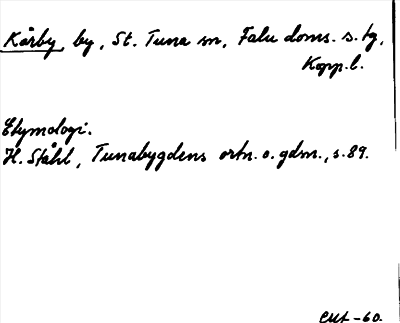 Kårby, by, St. Tuna sn, Falu doms. s. tg,
Kopp. l.
Etymologi.
H. Ståhl, Tunabygdens ortn. o. gdm., s. 89.
-60.